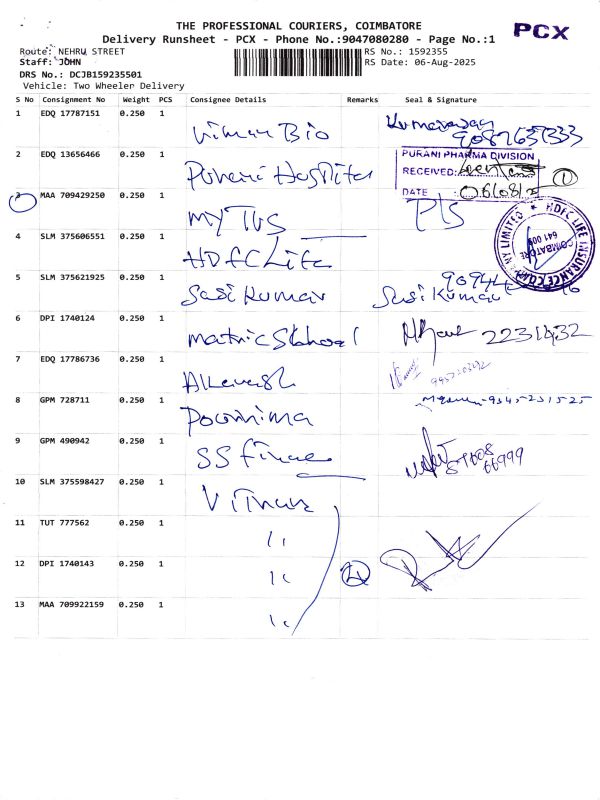 THE PROFESSIONAL COURIERS, COIMBATORE
PCX
Delivery Runsheet - PCX - Phone No.:9047080280 - Page No.:1
Route: NEHRU STREET
RS No.: 1592355
Staff: JOHN
RS Date: 06-Aug-2025
DRS No.: DCJB159235501
Vehicle: Two Wheeler Delivery
S No Consignment No Weight PCS Consignee Details Remarks Seal & Signature
1 EDQ 17787151 0.250 1 Bio
2 EDQ 13656466 0.250 1 Purani Hospital
PURANI PHARMA DIVISION
RECEIVED:
DATE : 06/08/2
1
3 MAA 709429250 0.250 1 My TVS
4 SLM 375606551 0.250 1 HDFC Life
HDFC LIFE INSURANCE COMPANY LIMITED
COIMBATORE
641 009
5 SLM 375621925 0.250 1 Sasi Kumar Sasi Kumar
6 DPI 1740124 0.250 1 Matric School 2231432
7 EDQ 17786736 0.250 1
8 GPM 728711 0.250 1 Poornima
9 GPM 490942 0.250 1 SS Finance
10 SLM 375598427 0.250 1
11 TUT 777562 0.250 1 "
12 DPI 1740143 0.250 1 " 4
13 MAA 709922159 0.250 1 "